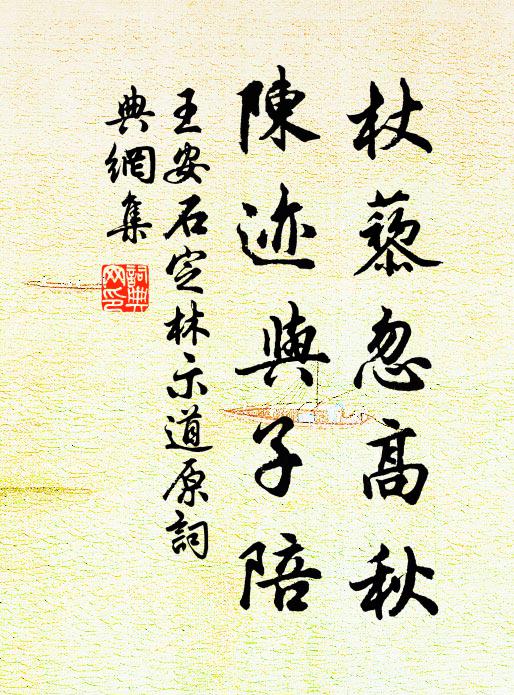 杖藜忽高秋
陳迹與子陪
王安石定林示道原詞
典網集
詞典
網印